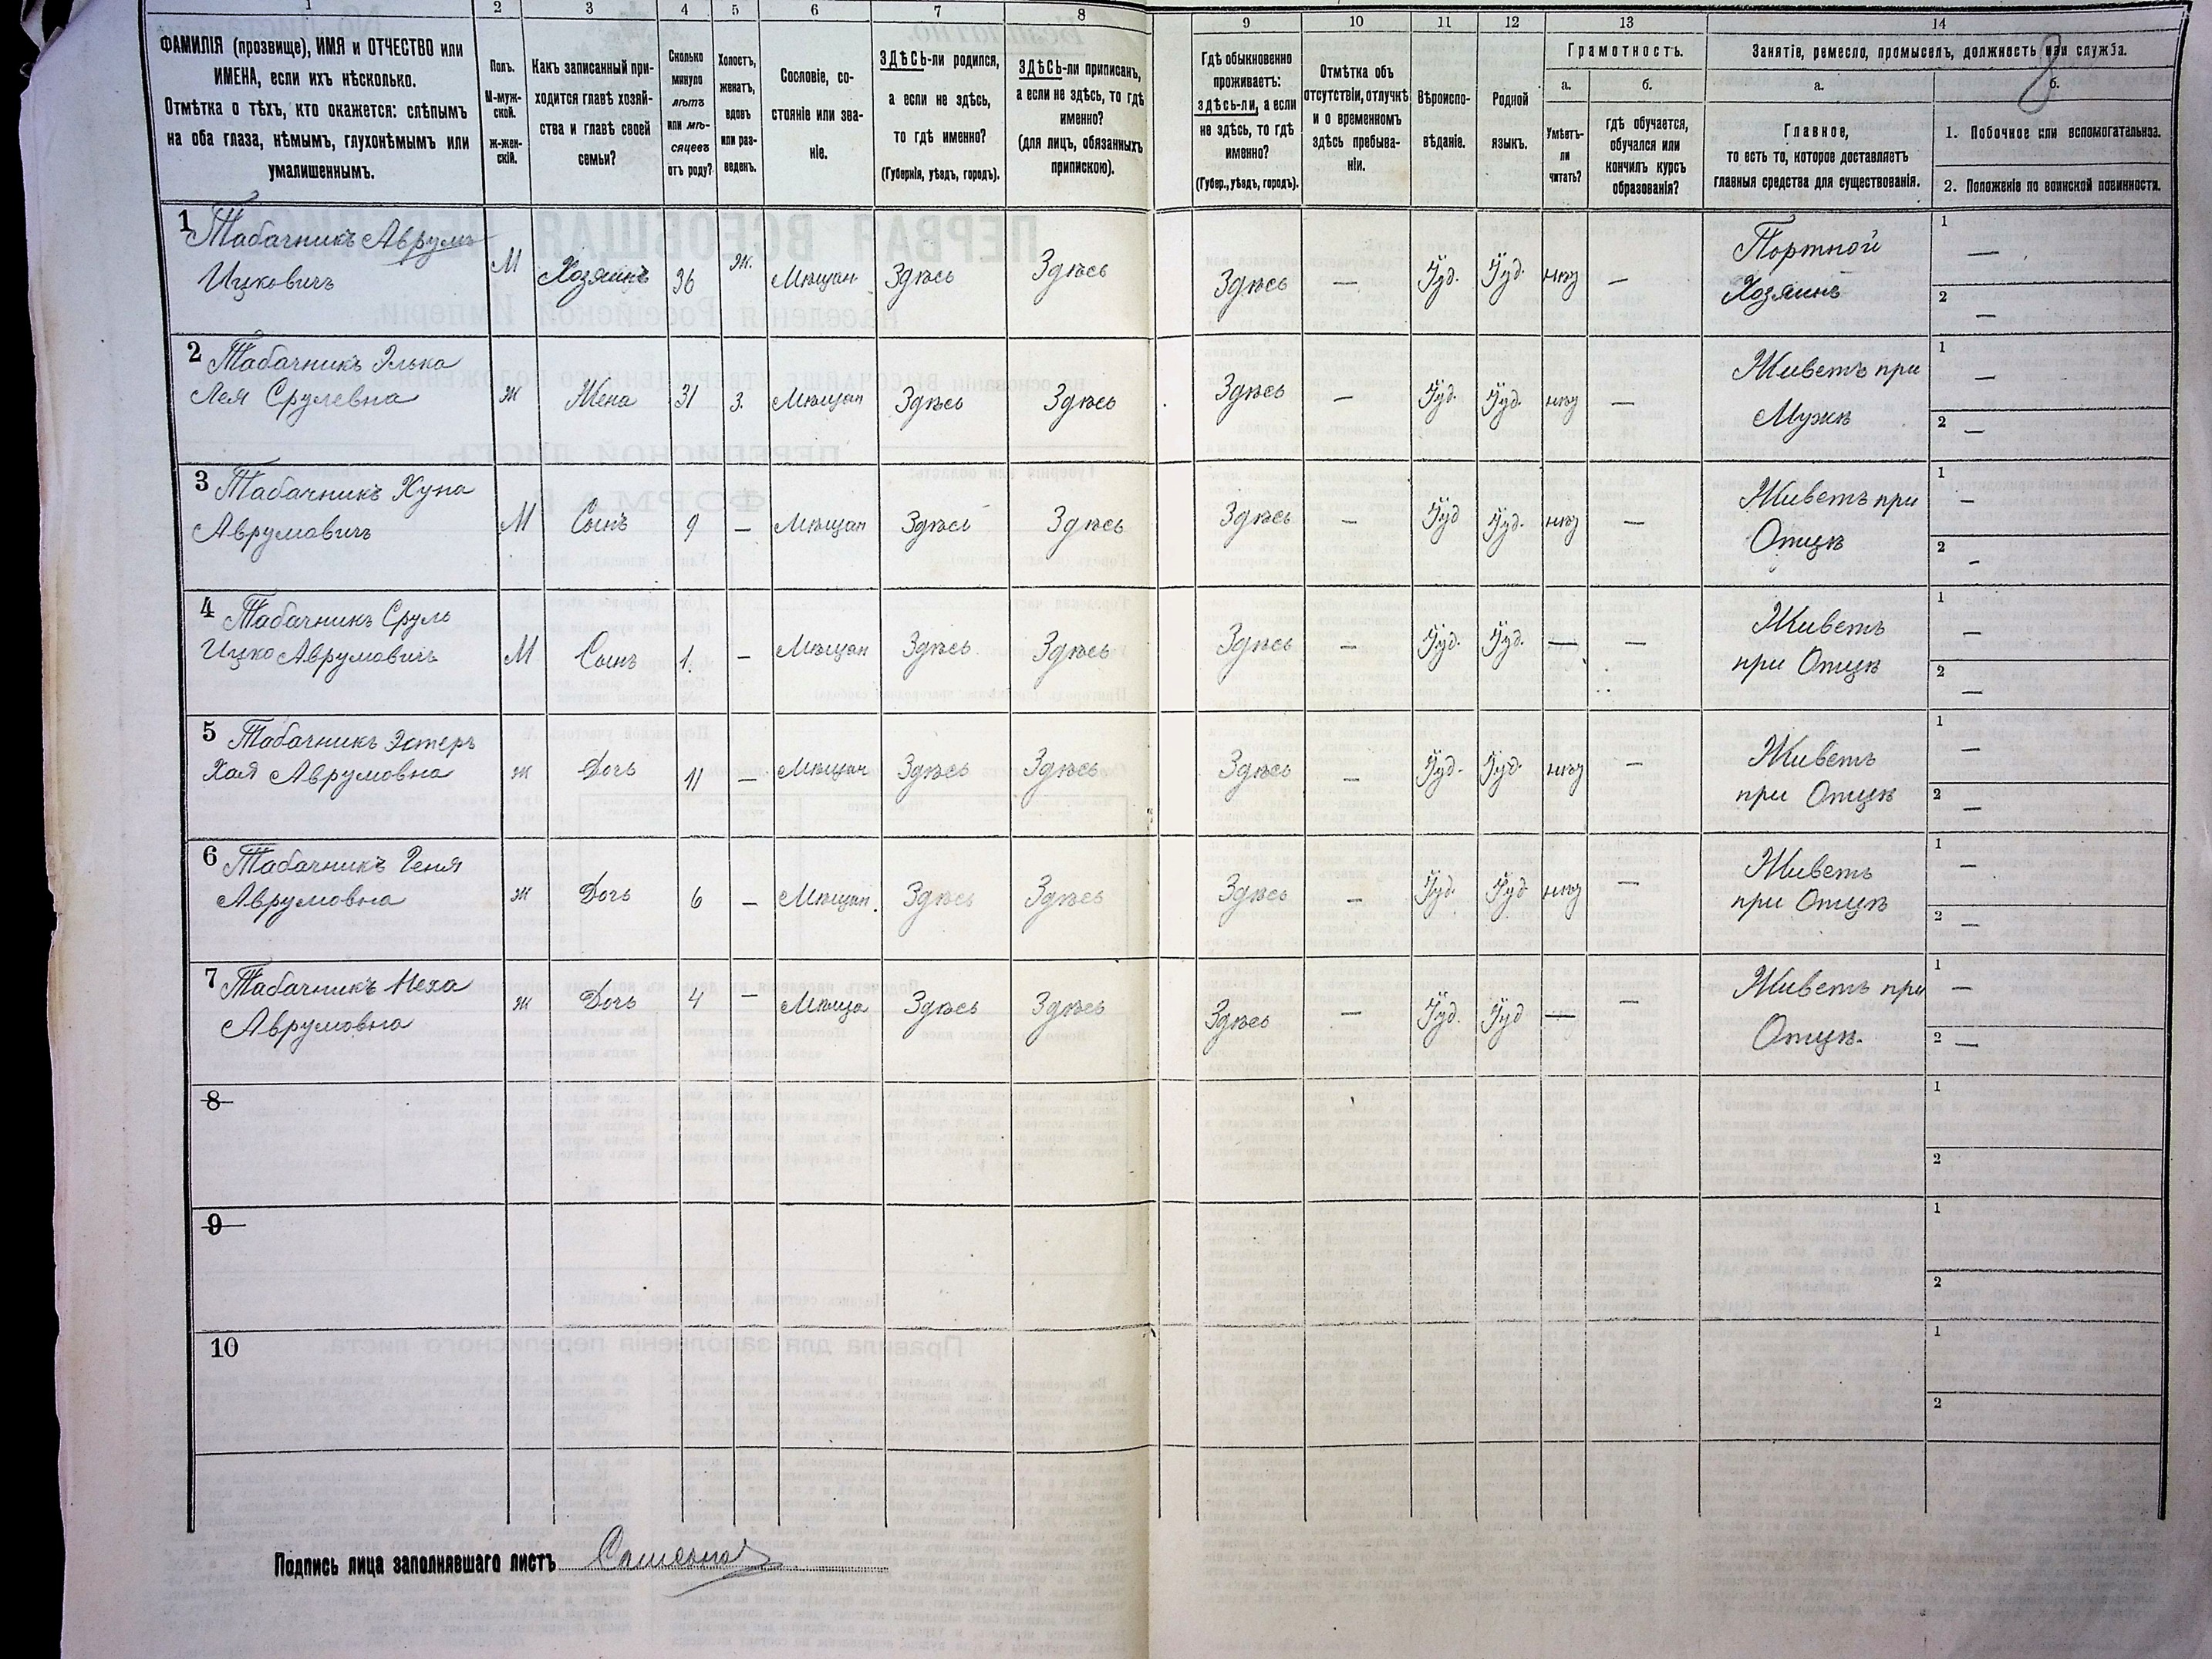 1 2 3 4 5 6 7 8 9 10 11 12 13 14
ФАМИЛІЯ (прозвище), ИМЯ и ОТЧЕСТВО или
ИМЕНА, если ихъ нѣсколько.
Отмѣтка о тѣхъ, кто окажется: слѣпымъ
на оба глаза, нѣмымъ, глухонѣмымъ или
умалишеннымъ.
Полъ.
М-муж-
ской.
ж-жен-
скій.
Какъ записанный при-
ходится главѣ хозяй-
ства и главѣ своей
семьи?
Сколько
минуло
лѣтъ
или мѣ-
сяцевъ
отъ роду?
Холостъ,
женатъ,
вдовъ
или раз-
веденъ.
Сословіе, со-
стояніе или зва-
ніе.
ЗДѢСЬ-ли родился,
а если не здѣсь,
то гдѣ именно?
(Губернія, уѣздъ, городъ).
ЗДѢСЬ-ли приписанъ,
а если не здѣсь, то гдѣ
именно?
(для лицъ, обязанныхъ
припискою).
Гдѣ обыкновенно
проживаетъ:
здѣсь-ли, а если
не здѣсь, то гдѣ
именно?
(Губер., уѣздъ, городъ).
Отмѣтка объ
отсутствіи, отлучкѣ
и о временномъ
здѣсь пребыва-
ніи.
Вѣроиспо-
вѣданіе.
Родной
языкъ.
Грамотность.
а.
Умѣетъ-
ли
читать?
б.
гдѣ обучается,
обучался или
кончилъ курсъ
образованія?
Занятіе, ремесло, промыселъ, должность или служба.
8
а.
Главное,
то есть то, которое доставляетъ
главныя средства для существованія.
б.
1. Побочное или вспомогательное.
2. Положеніе по воинской повинности.
1 Табачникъ Аврумъ
Ицковичъ
М Хозяинъ 36 Ж. Мѣщан Здѣсь Здѣсь Здѣсь — Іуд. Іуд. нѣт —
Портной
Хозяинъ
1 —
2 —
2 Табачникъ Элька
Лея Срулевна
Ж Жена 31 З. Мѣщан Здѣсь Здѣсь Здѣсь — Іуд. Іуд. нѣт —
Живетъ при
Мужѣ
1 —
2 —
3 Табачникъ Хуна
Аврумовичъ
М Сынъ 9 — Мѣщан Здѣсь Здѣсь Здѣсь — Іуд Іуд. нѣт —
Живетъ при
Отцѣ
1 —
2 —
4 Табачникъ Сруль
Ицко Аврумовичъ
М Сынъ 1. — Мѣщан Здѣсь Здѣсь Здѣсь — Іуд. Іуд. — —
Живетъ
при Отцѣ
1 —
2 —
5 Табачникъ Эстеръ
Хая Аврумовна
Ж Дочь 11 — Мѣщан Здѣсь Здѣсь Здѣсь — Іуд. Іуд нѣт —
Живетъ
при Отцѣ
1 —
2 —
6 Табачникъ Геня
Аврумовна
Ж Дочь 6 — Мѣщан. Здѣсь Здѣсь Здѣсь — Іуд. Іуд нѣт —
Живетъ
при Отцѣ
1 —
2 —
7 Табачникъ Неха
Аврумовна
Ж Дочь 4 — Мѣща Здѣсь Здѣсь Здѣсь — Іуд. Іуд — —
Живетъ при
Отцѣ.
1 —
2 —
8
1
2
9
1
2
10
1
2
Подпись лица заполнявшаго листъ